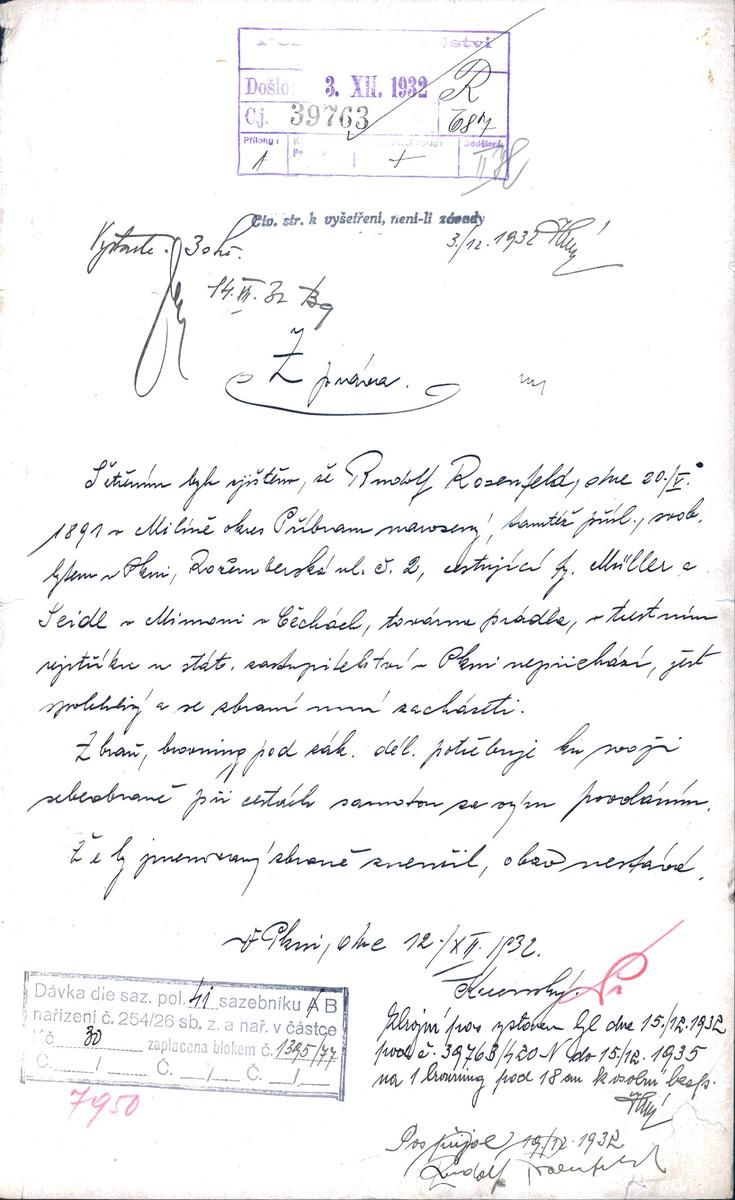 Došlo: 3. XII. 1932
R
687
Č.j. 39763
Přílohy:
1
+
II
Civ. str. k vyšetření, není-li závady
3./12. 1932
14. XII. 32
Zpráva.
Šetřením bylo zjištěno, že Rudolf Rosenfeld, dne 20./V.
1891 v Milíně okres Příbram narozený, tamtéž přísl., svob.
bytem v Plzni, Rožemberská ul. č. 2, cestující fy. Müller a
Seidl v Mimoni v Čechách, továrna prádla, v trestním
rejstříku u stát. zastupitelství v Plzni nepřichází, jest
spolehlivý a se zbraní umí zacházeti.
Zbraň, browning pod zák. dél. potřebuje ku svoji
sebeobraně při cestách samotou za svým povoláním.
Že by jmenovaný zbraně zneužil, obav nestává.
V Plzni, dne 12./XII. 1932.
Dávka dle saz. pol. 41 sazebníku A B
nařízení č. 254/26 sb. z. a nař. v částce
Kč 30 zaplacena blokem č. 1395/77
Č. / Č. / Č. /
7950
Zbrojní pas vystaven byl dne 15./12. 1932
pod č. 39763/420-N do 15./12. 1935
na 1 browning pod 18 cm k osobní bezp.
Pas přijal 19./12. 1932
Rudolf Rosenfeld